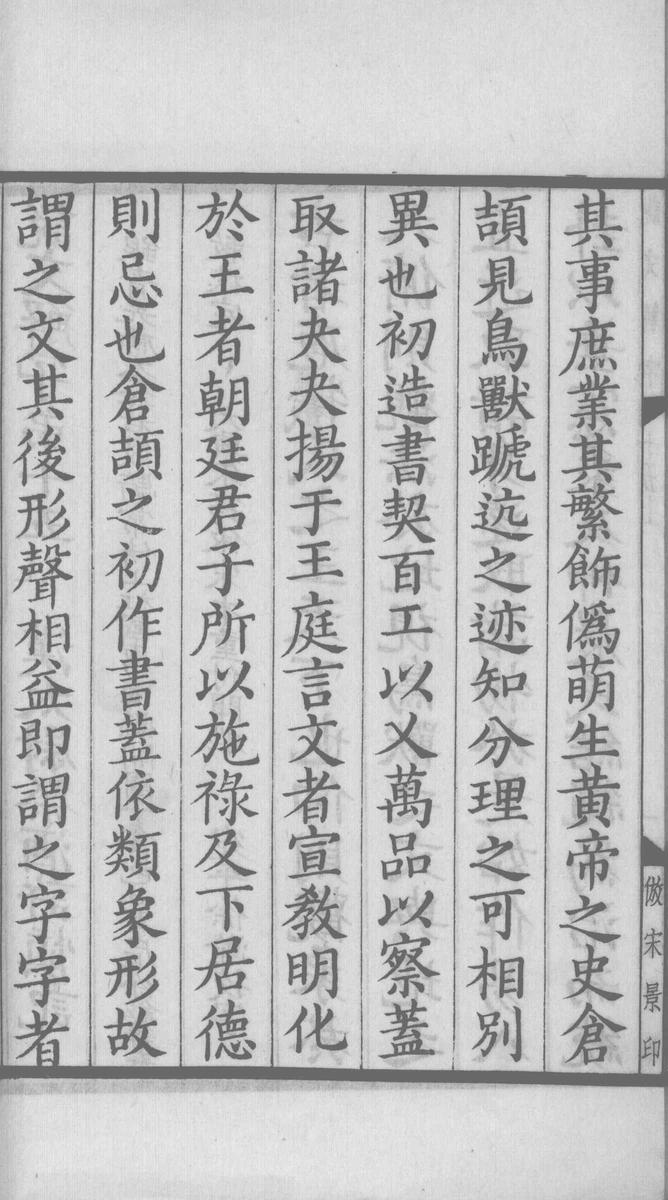 其事庶業其繁飾僞萌生黄帝之史倉
頡見鳥獸蹏迒之迹知分理之可相別
異也初造書契百工以乂萬品以察蓋
取諸夬夬揚于王庭言文者宣敎明化
於王者朝廷君子所以施祿及下居德
則忌也倉頡之初作書蓋依類象形故
謂之文其後形聲相益即謂之字字者
倣宋景印